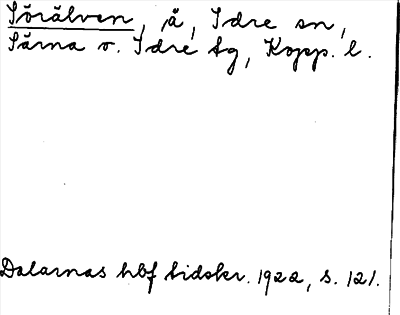 Sörälven, å, Idre sn,
Särna o. Idre tg, Kopp. l.
Dalarnas hbf tidskr. 1922, s. 121.